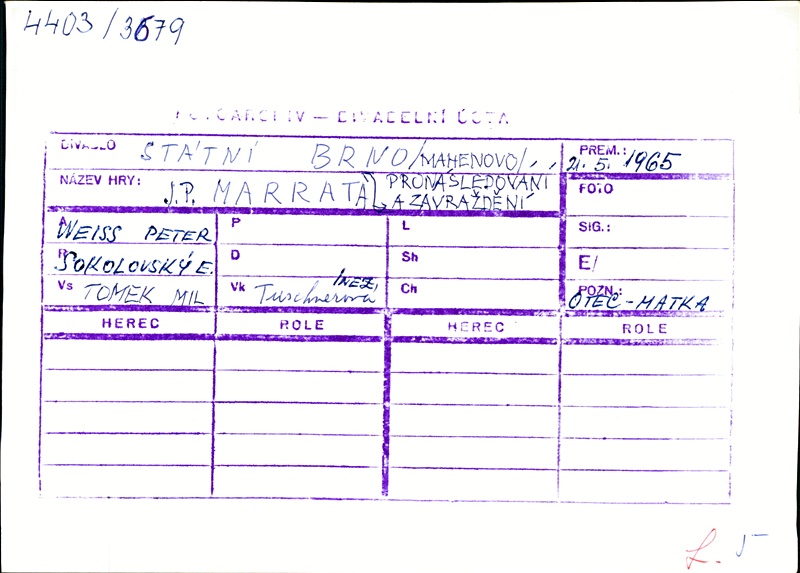 4403/3679
FOTOARCHIV — DIVADELNÍ ÚSTAV
DIVADLO STÁTNÍ BRNO /MAHENOVO/ PREM.: 21. 5. 1965
NÁZEV HRY: J.P. MARRATA PRONÁSLEDOVÁNÍ FOTO
A ZAVRAŽDĚNÍ
WEISS PETER P L SIG.:
R SOKOLOVSKÝ E. D Sh E/
Vs TOMEK MIL Vk Tuschnerová /INEZ/ Ch POZN.: OTEC-MATKA
HEREC ROLE HEREC ROLE
L. 5